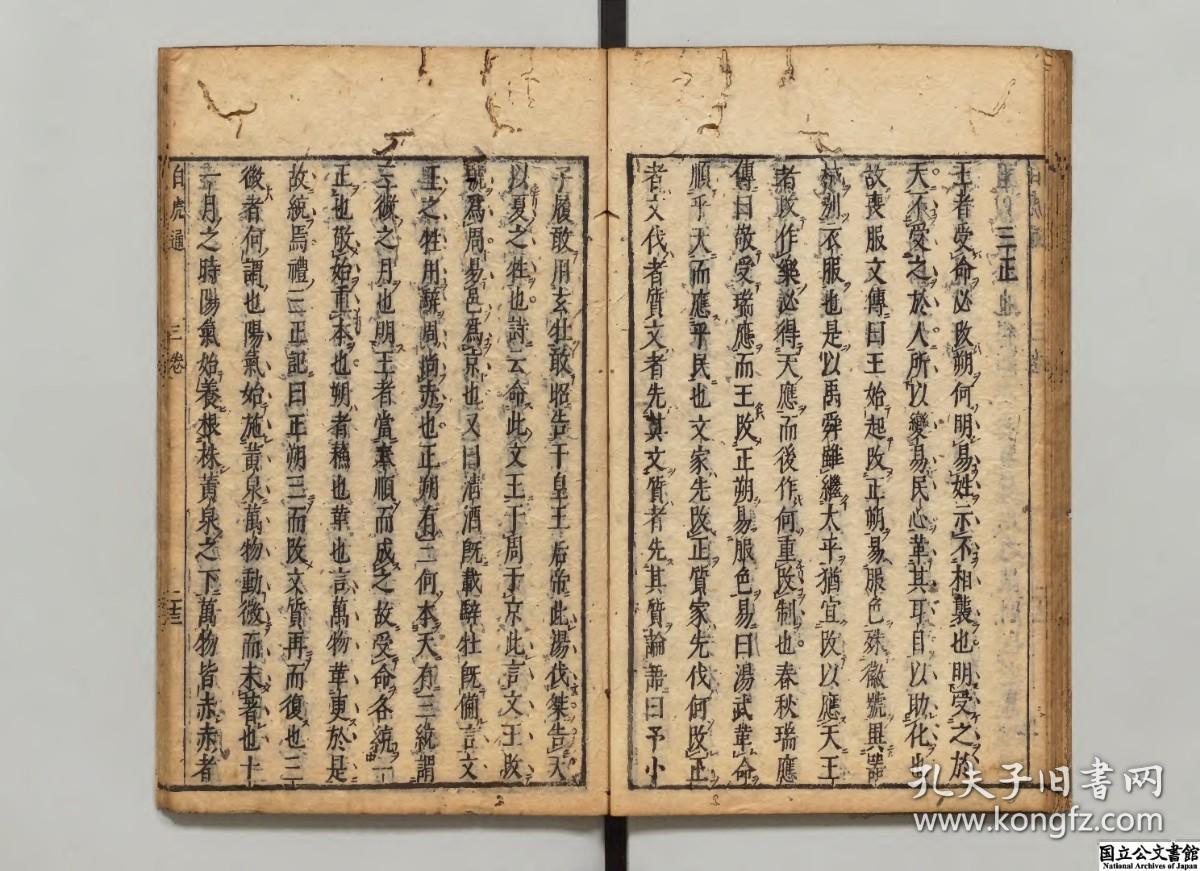 三正
王者受命必改朔何明易姓示不相襲也明受之於
天不受之於人所以變易民心革其耳目以助化也
故喪服大傳曰王始起改正朔易服色殊徽號異器
械別衣服也是以禹舜雖繼太平猶宜改以應天王
者改作樂必得天應而後作何重改制也春秋瑞應
傳曰敬受瑞應而王改正朔易服色易曰湯武革命
順乎天而應乎民也文家先改正質家先伐何改正
者文伐者質文者先其文質者先其質論語曰予小
子履敢用玄牡敢昭告于皇王后帝此湯伐桀告天
以夏之牲也詩云命此文王于周于京此言文王改
號爲周易邑爲京也又曰清酒既載騂牡既備言文
王之牲用騂周尚赤也正朔有三何本天有三統謂
三微之月也明王者當奉順而成之故受命各統一
正也敬始重本也朔者穌也革也言萬物革更於是
故統焉禮三正記曰正朔三而改文質再而復也三
微者何謂也陽氣始施黃泉萬物動微而未著也十
一月之時陽氣始養根株黃泉之下萬物皆赤赤者
白虎通 三卷
孔夫子旧书网
www.kongfz.com
国立公文書館
National Archives of Japan